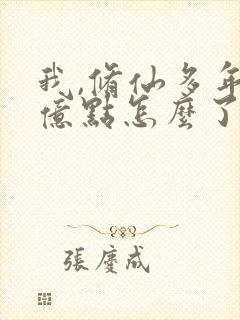 我,脩仙多年
億點怎麼了
張慶成